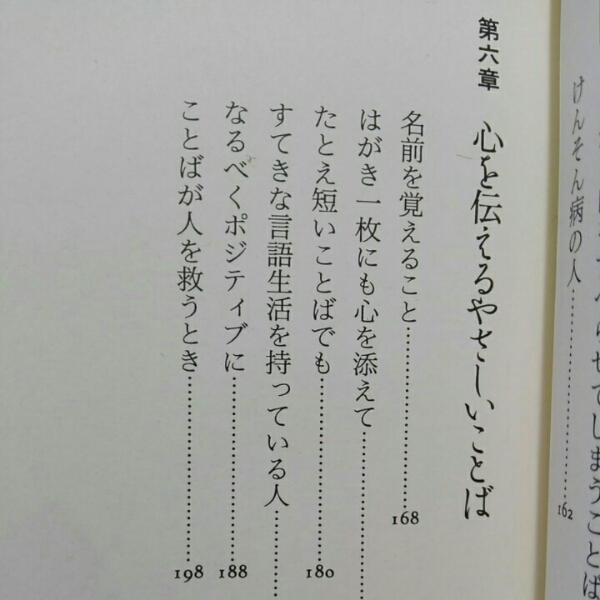 けんそん病の人…………162
てしまうことば
第六章 心を伝えるやさしいことば
名前を覚えること…………168
はがき一枚にも心を添えて…………
たとえ短いことばでも…………180
すてきな言語生活を持っている人…………
なるべくポジティブに…………188
ことばが人を救うとき…………198